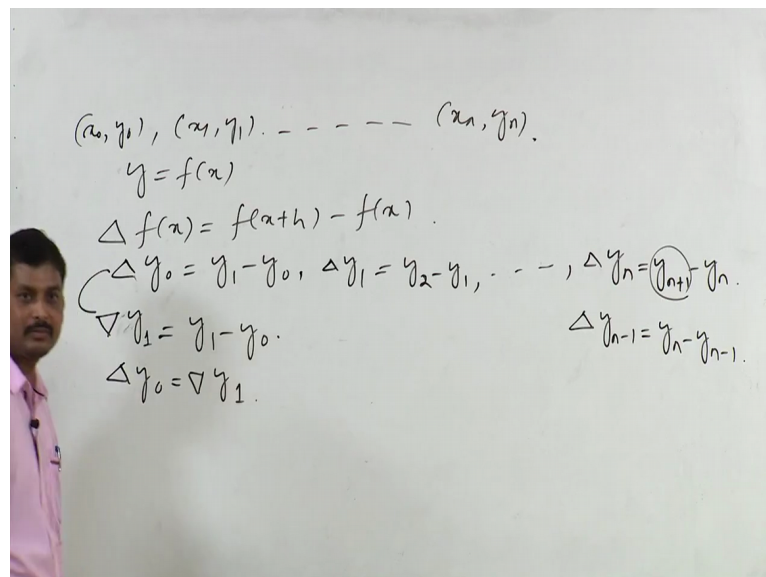 (x₀, y₀), (x₁, y₁). - - - - - - (xₙ, yₙ).
y = f(x)
Δ f(x) = f(x+h) - f(x).
Δ y₀ = y₁ - y₀, Δ y₁ = y₂ - y₁, - - - -, Δ yₙ = yₙ₊₁ - yₙ.
∇ y₁ = y₁ - y₀.
Δ yₙ₋₁ = yₙ - yₙ₋₁.
Δ y₀ = ∇ y₁.